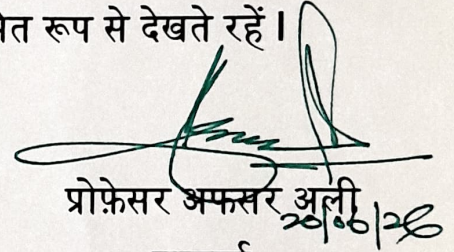 रूप से देखते रहें।
प्रोफ़ेसर अफसर अली
20/06/26